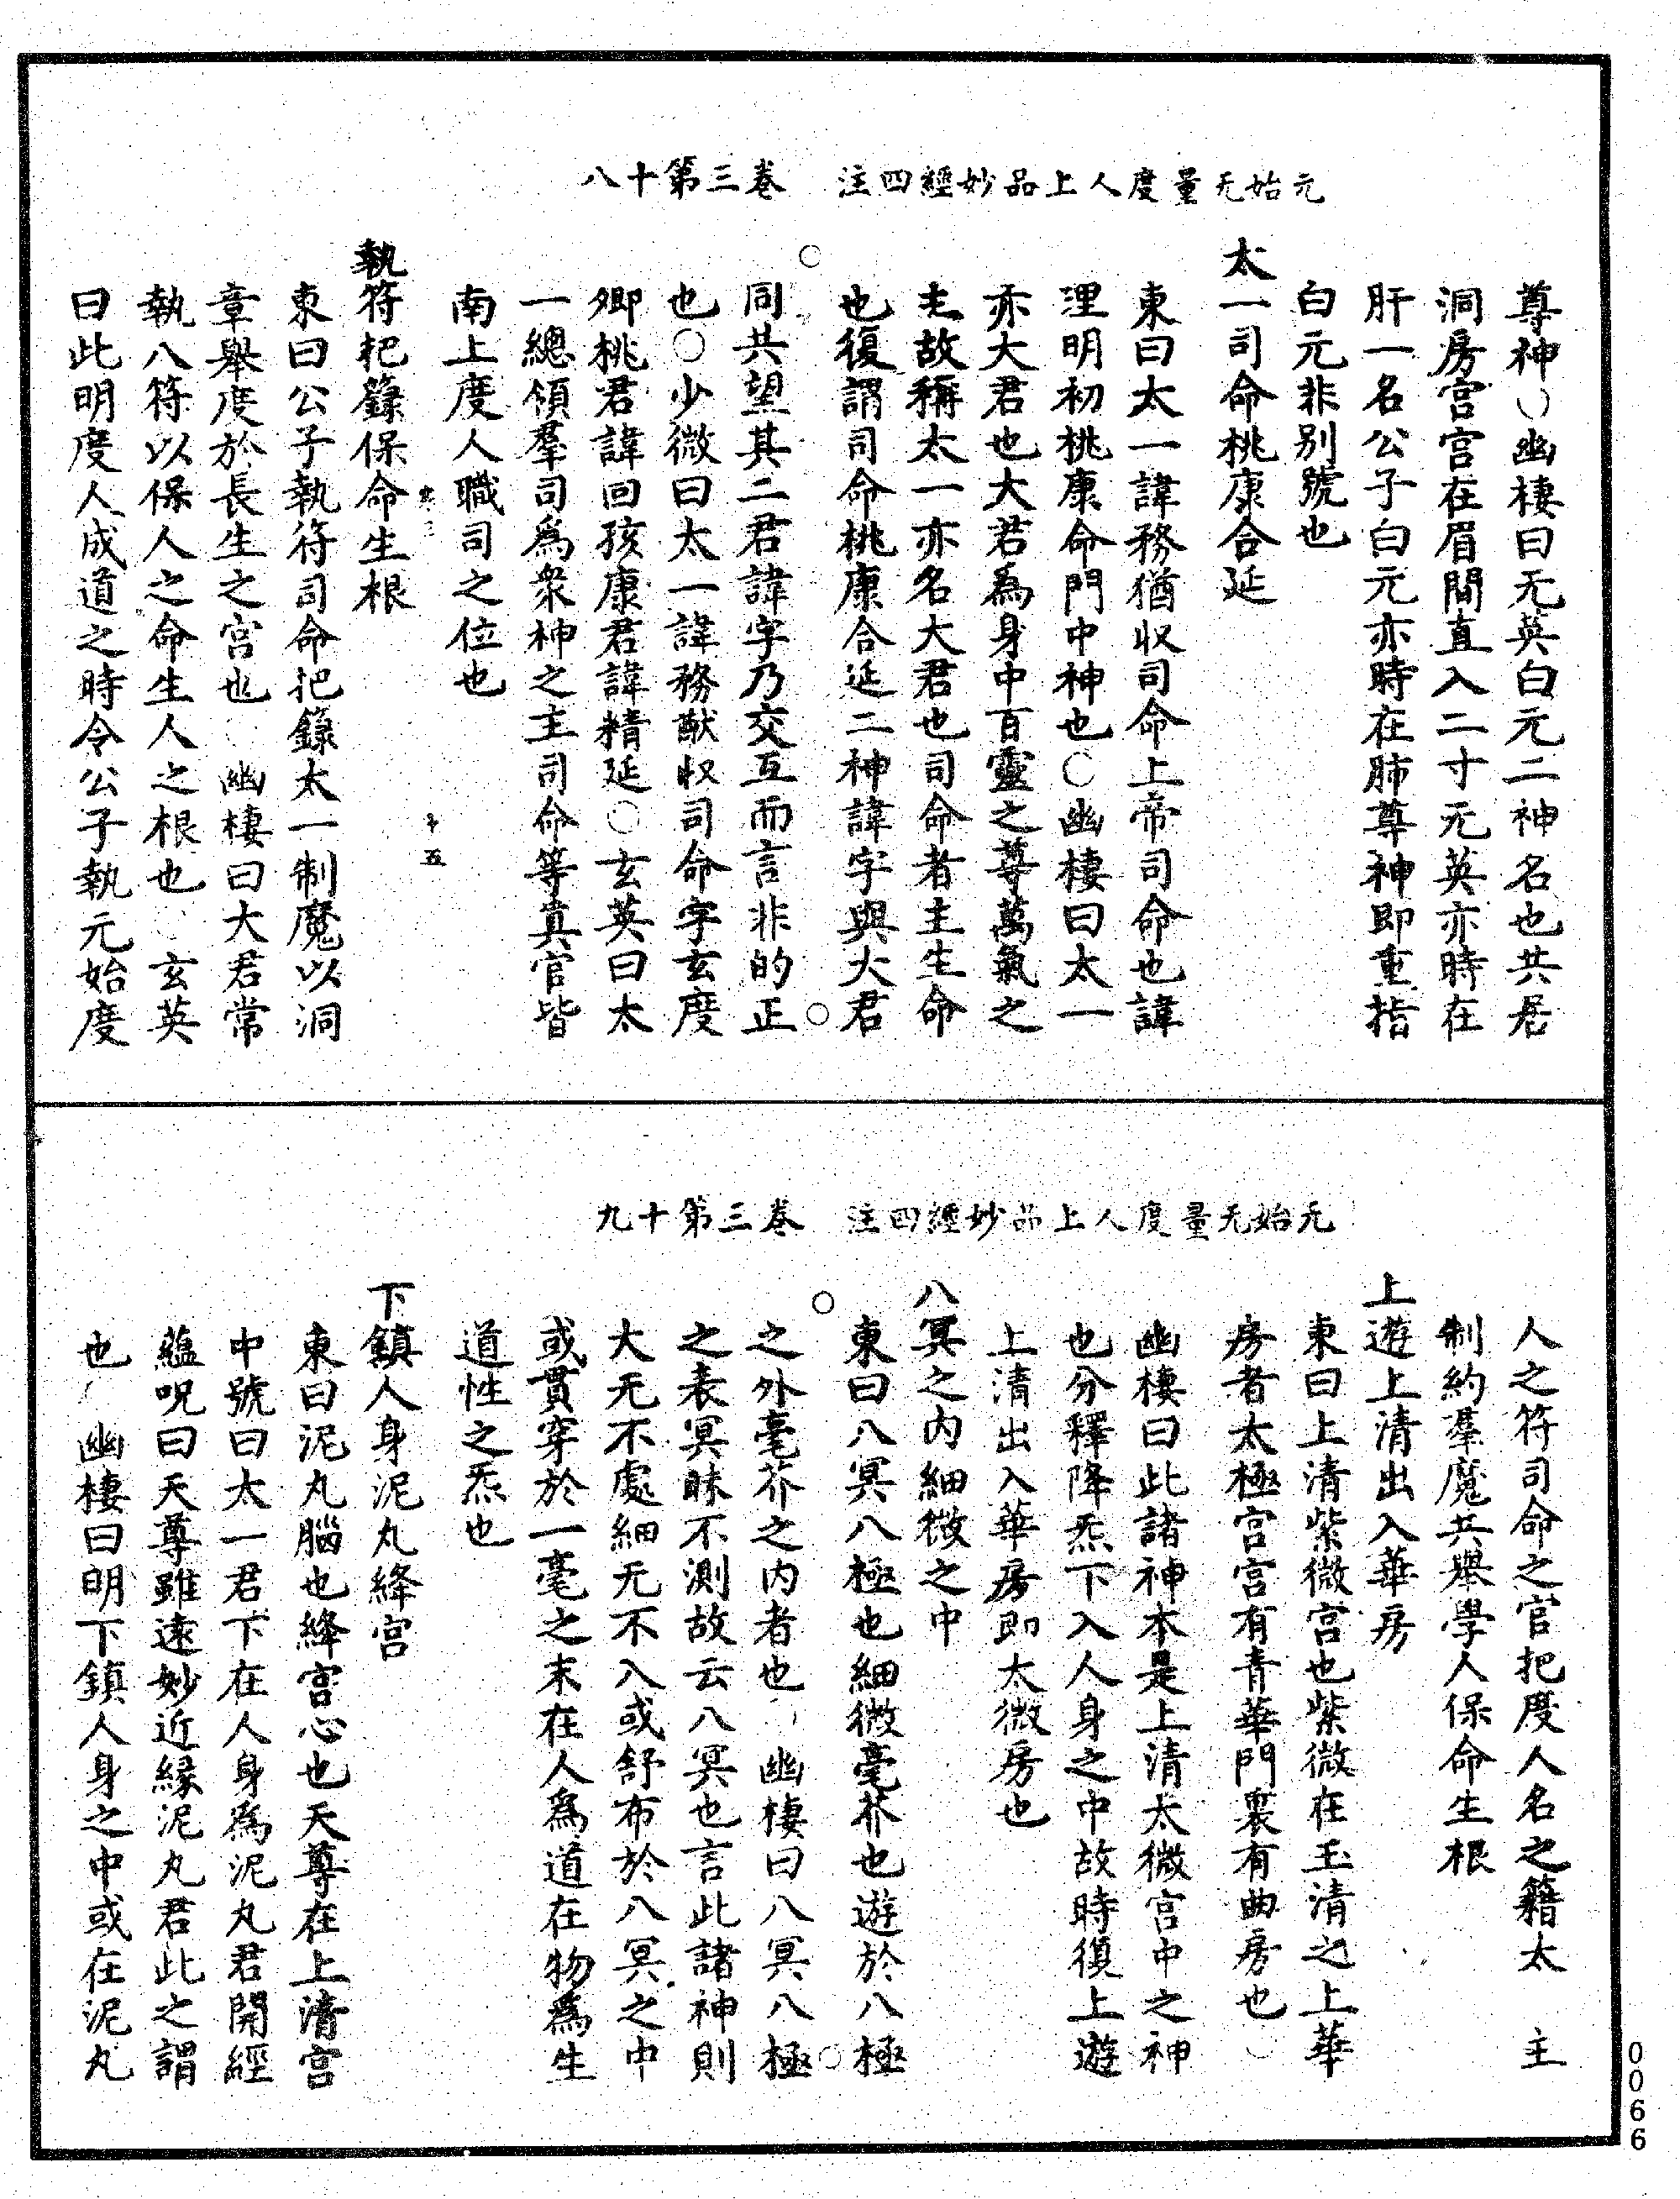 元始无量度人上品妙經四注　卷三第十八
尊神○幽棲曰无英白元二神名也共居
洞房宮宮在眉間直入二寸无英亦時在
肝一名公子白元亦時在肺尊神即重指
白元非別號也
太一司命桃康合延
東曰太一諱務猶收司命上帝司命也諱
理明初桃康命門中神也○幽棲曰太一
亦大君也大君為身中百靈之尊萬氣之
主故稱太一亦名大君也司命者主生命
也復謂司命桃康合延二神諱字與大君
同共望其二君諱字乃交互而言非的正
也○少微曰太一諱務猷收司命字玄度
卿桃君諱回孩康君諱精延○玄英曰太
一總領羣司為衆神之主司命等真官皆
南上度人職司之位也
十五
執符把籙保命生根
東曰公子執符司命把籙太一制魔以洞
章舉度於長生之宮也　幽棲曰大君常
執八符以保人之命生人之根也　玄英
曰此明度人成道之時令公子執元始度
元始无量度人上品妙經四注　卷三第十九
人之符司命之官把度人名之籍太　主
制約羣魔共舉學人保命生根
上遊上清出入華房
東曰上清紫微宮也紫微在玉清之上華
房者太極宮宮有青華門裏有曲房也
幽棲曰此諸神本是上清太微宮中之神
也分釋降炁下入人身之中故時復上遊
上清出入華房即太微房也
八冥之內細微之中
東曰八冥八極也細微毫芥也遊於八極
之外毫芥之內者也　幽棲曰八冥八極
之表冥昧不測故云八冥也言此諸神則
大无不處細无不入或舒布於八冥之中
或貫穿於一毫之末在人為道在物為生
道性之炁也
下鎮人身泥丸絳宮
東曰泥丸腦也絳宮心也天尊在上清宮
中號曰太一君下在人身為泥丸君開經
蘊呪曰天尊雖遠妙近緣泥丸君此之謂
也　幽棲曰明下鎮人身之中或在泥丸
0066